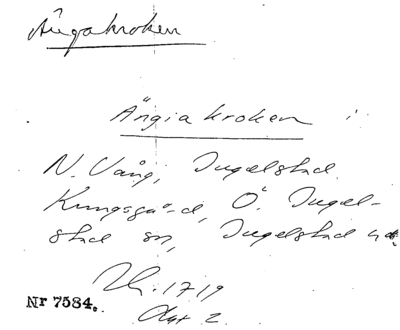 Ängakroken
Ängia kroken i
N. Vång, Ingelstad
Kungsgård, Ö. Ingel-
stad sn, Ingelstad hd.
1719
Akt 2.
Nr 7584.